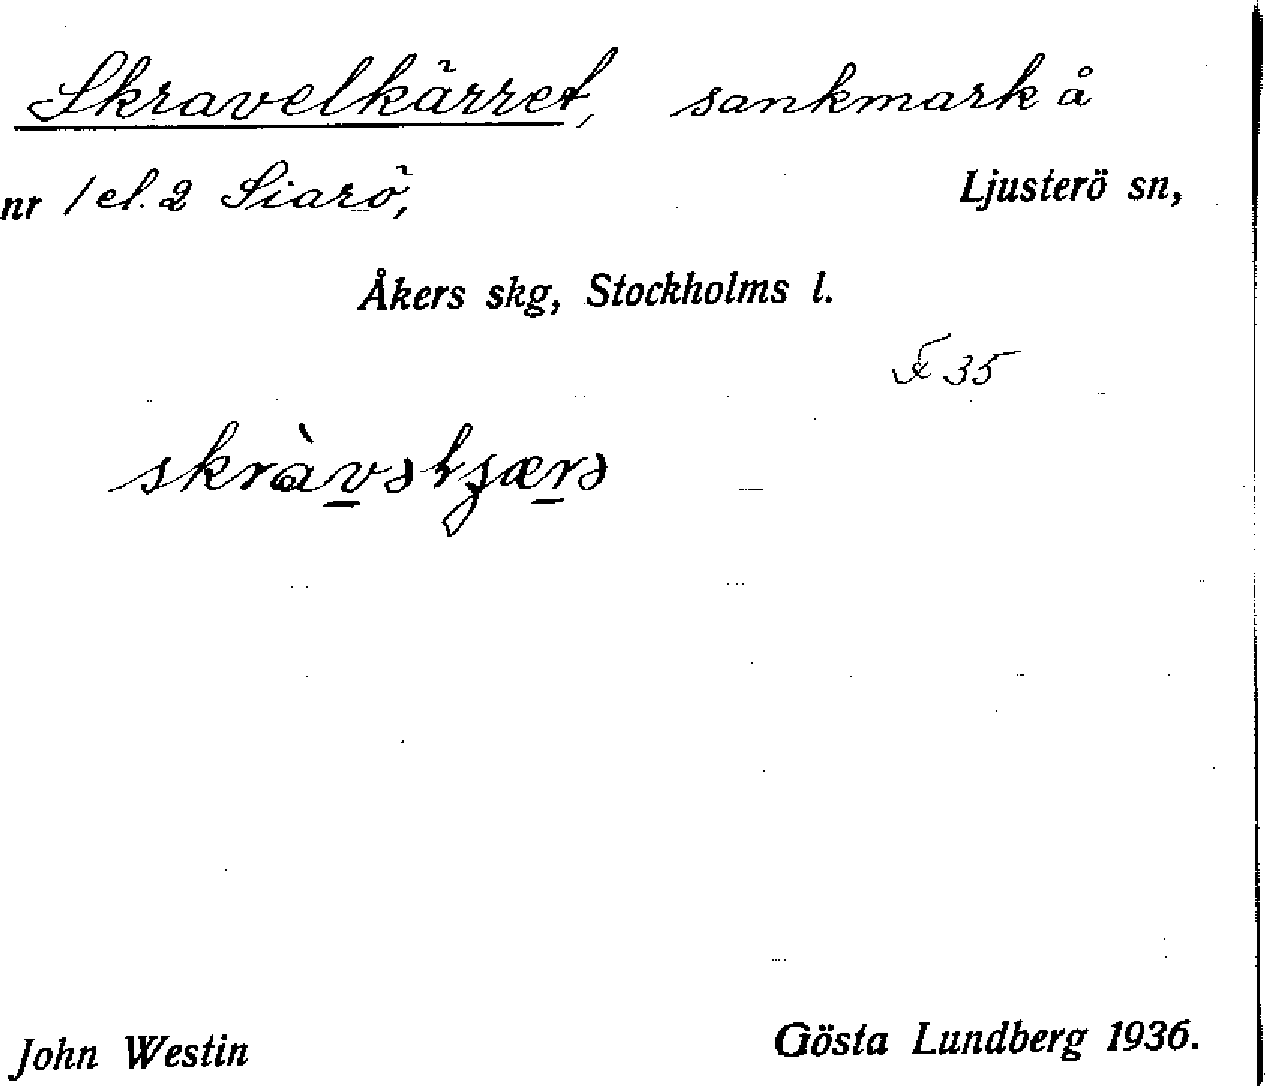 Skravelkärret, sankmark å
nr 1 el. 2 Siarö, Ljusterö sn,
Åkers skg, Stockholms l.
35
John Westin Gösta Lundberg 1936.